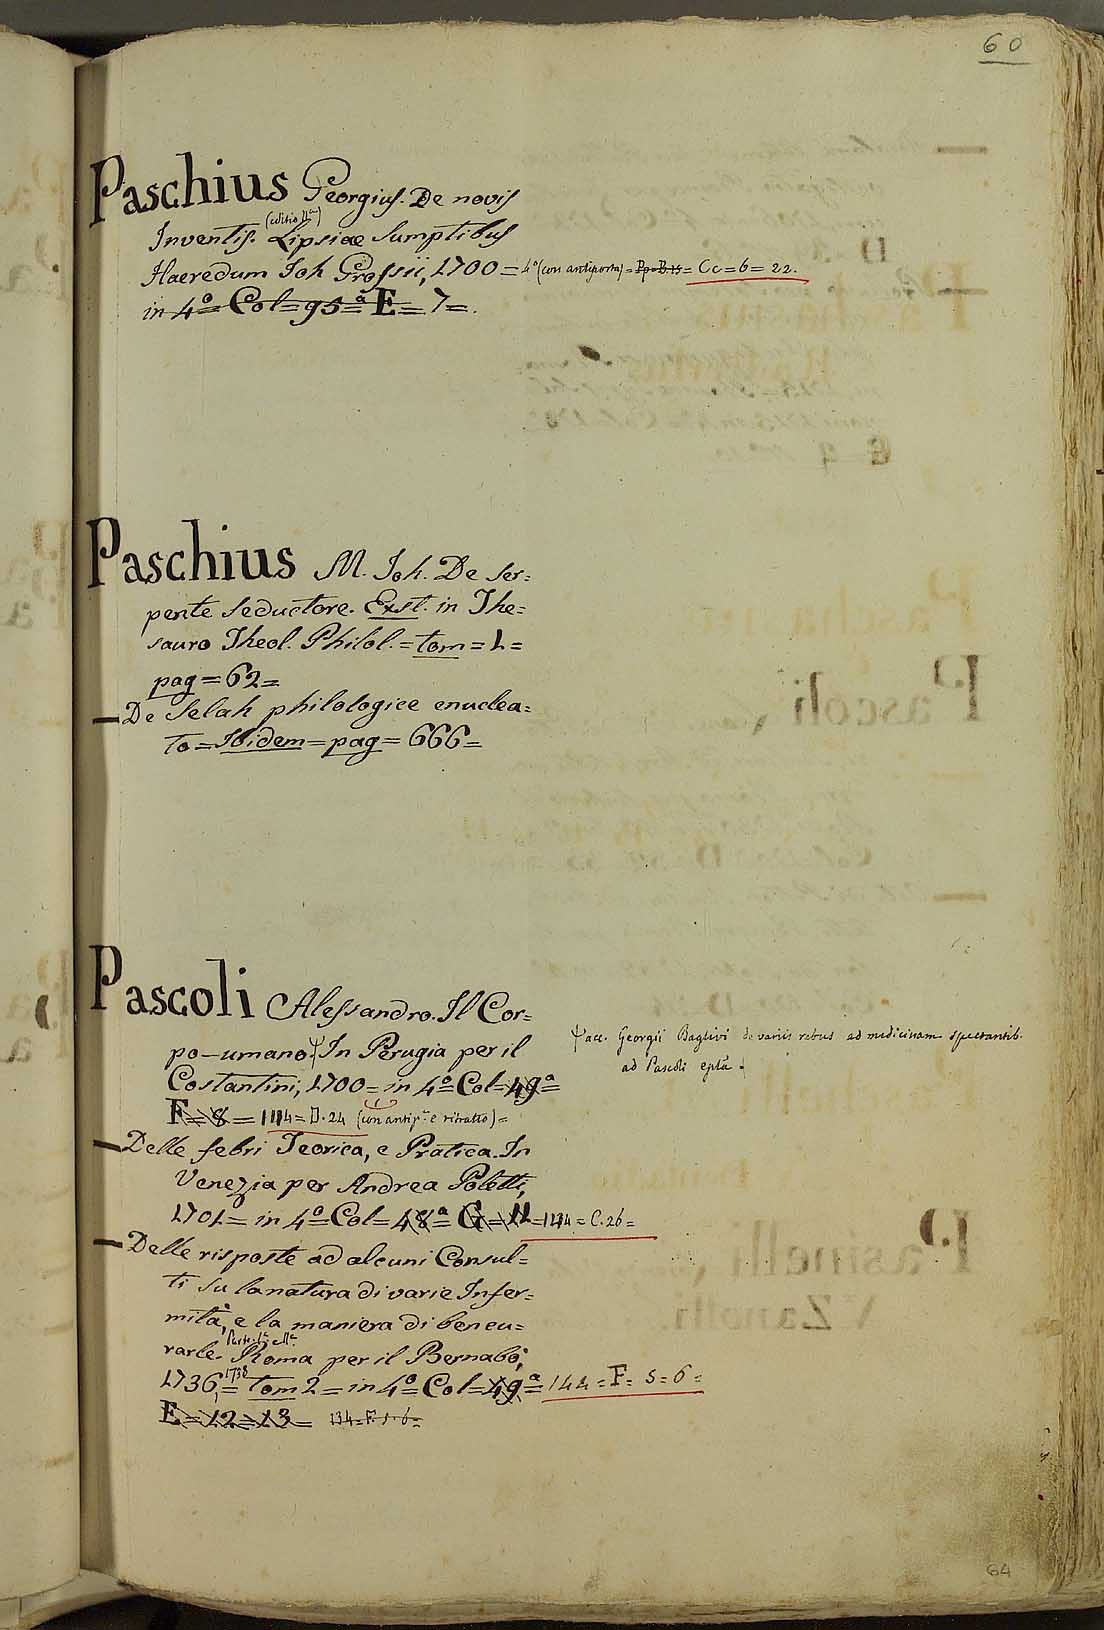 60
Paschius Georgius. De novis
(editio IIa)
Inventis. Lipsiae Sumptibus
Haeredum Joh Grossii, 1700 = 4º (con antiporta) = Pp=B.15 = Cc=6=22.
in 4º= Col=95=ª E=7=.
Paschius M. Joh. De ser=
pente seductore. Exst. in The=
sauro Theol. Philol.=tom=1=
pag=62=
De Selah philologice enuclea=
to=Ibidem=pag=666=
Pascoli Alessandro. Il Cor=
po-umano. In Perugia per il
acc. Georgii Baglivi de variis rebus ad medicinam spectantib.
ad Pascoli epla
Costantini, 1700=in 4º Col=49ª=
F=8=144=D.24 (con antip.ª e ritratto)=
Delle febri Teorica, e Pratica. In
Venezia per Andrea Poletti,
1701= in 4º=Col=48ª= G=11=144=C.26=
Delle risposte ad alcuni Consul=
ti su la natura di varie Infer=
mità, e la maniera di ben cu=
Parte Iª IIª
rarle. Roma per il Bernabò,
1738
1736,=tom 2=in 4º=Col=49ª=144=F=5=6=
E=12=13= 134=F.5.6=
64